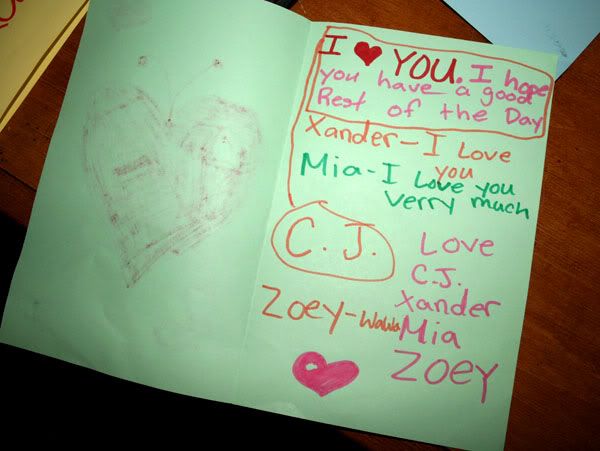 I ♥ YOU. I hope
you have a good
Rest of the Day
Xander-I Love
you
Mia-I Love you
verry much
C.J.
Love
C.J.
Xander
Zoey-wawa
Mia
Zoey